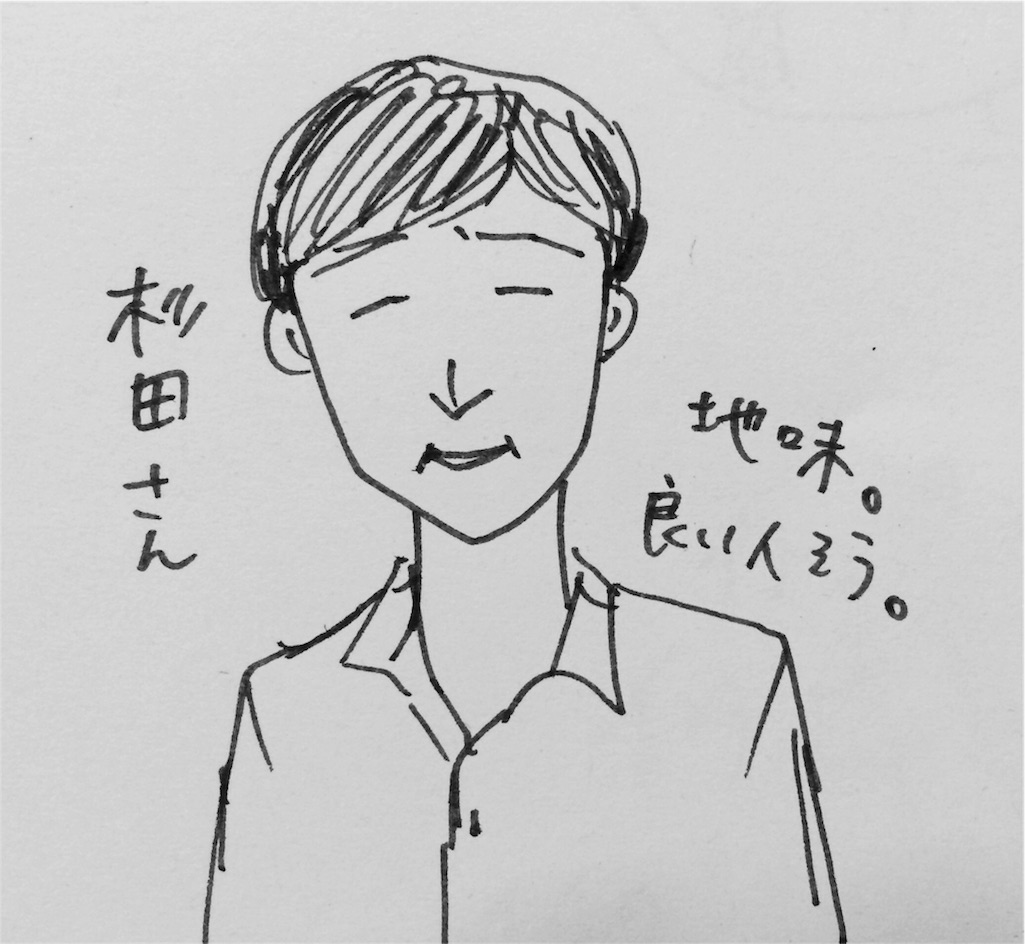 杉田さん
地味。
良い人そう。